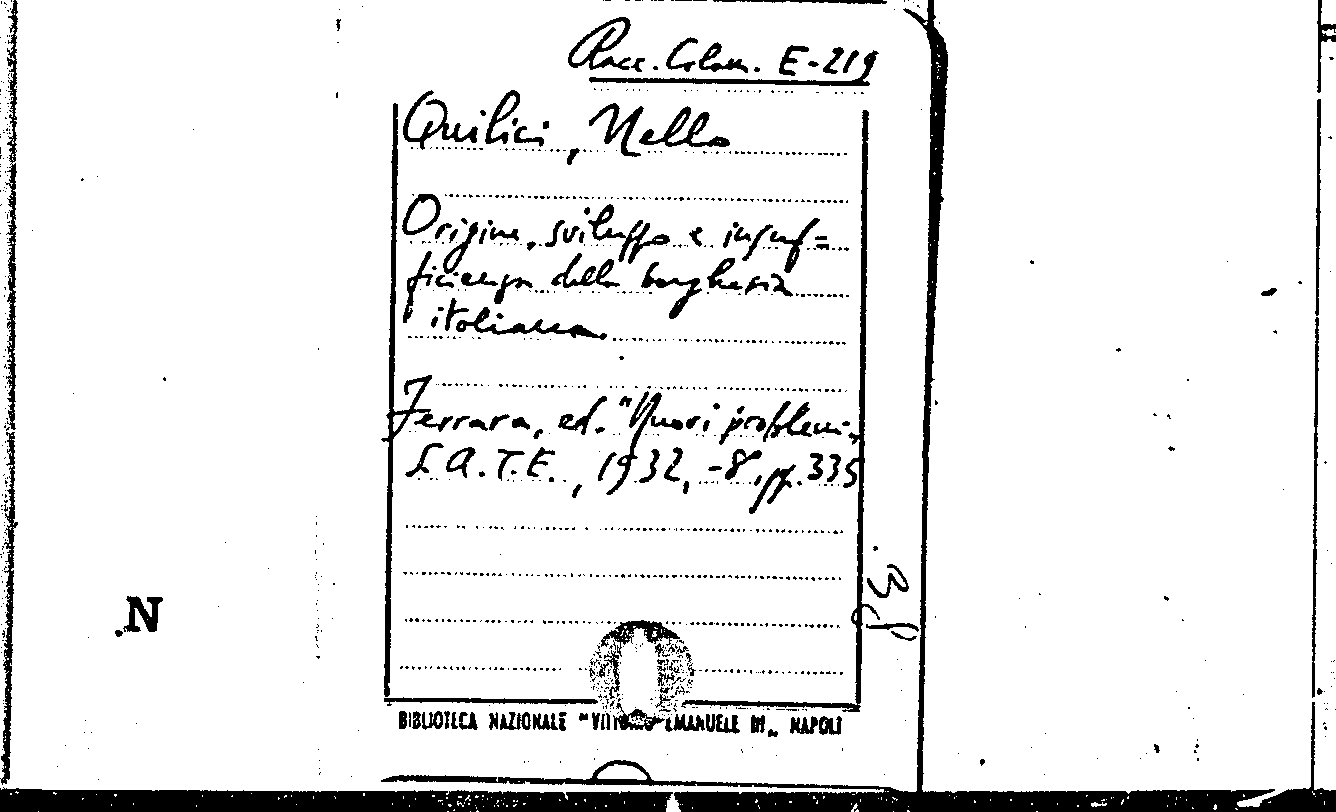 Race. Colom. E-219
Quilici, Nello
Origine, sviluppo e insuf=
ficienza della borghesia
italiana.
Ferrara, ed. "Nuovi problemi"
S.A.T.E., 1932, -8°, pp. 335
BIBLIOTECA NAZIONALE "VITTORIO EMANUELE III„ NAPOLI
N